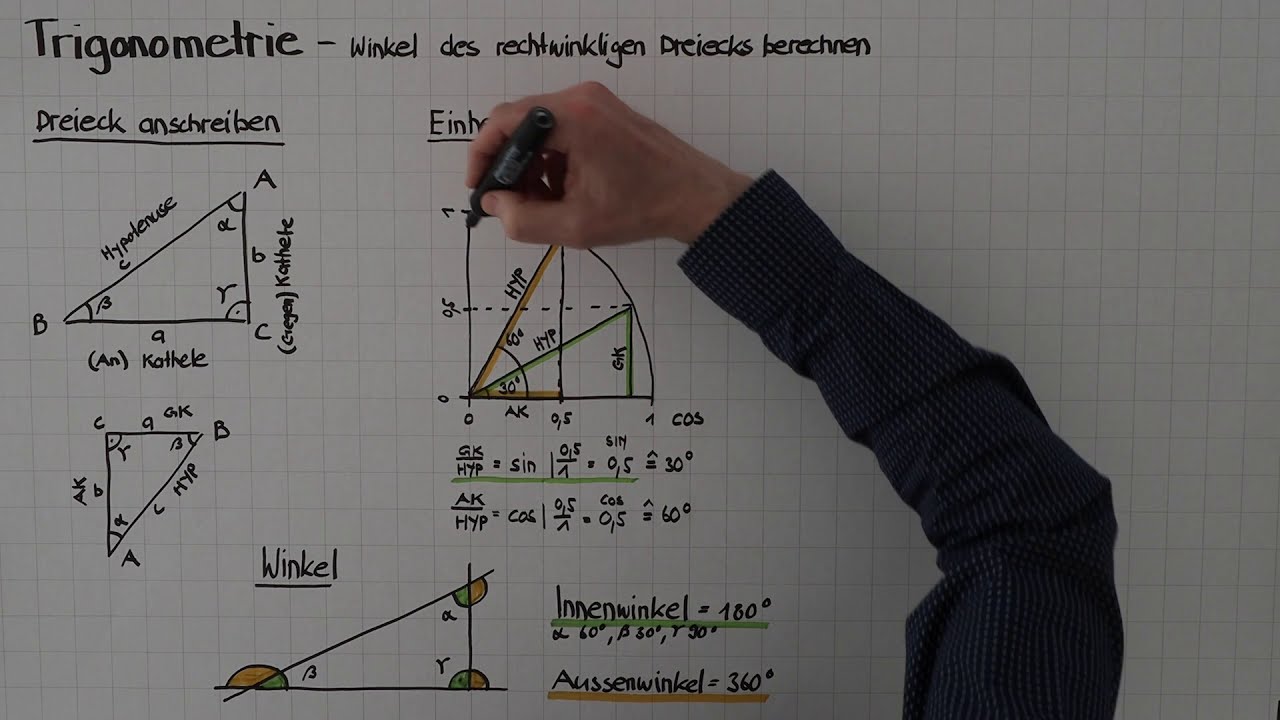 Trigonometrie - Winkel des rechtwinkligen Dreiecks berechnen
Dreieck anschreiben
A
α
Hypotenuse
c
b
(Gegen) Kathete
β
γ
B
C
a
(An) Kathete
C
a
GK
B
γ
β
AK
b
HYP
c
α
A
1
0,5
0
HYP
60°
HYP
GK
30°
AK
0
0,5
1
cos
GK/HYP = sin | 0,5/1 = sin 0,5 ≙ 30°
AK/HYP = cos | 0,5/1 = cos 0,5 ≙ 60°
Winkel
α
β
γ
Innenwinkel = 180°
α 60°, β 30°, γ 90°
Aussenwinkel = 360°